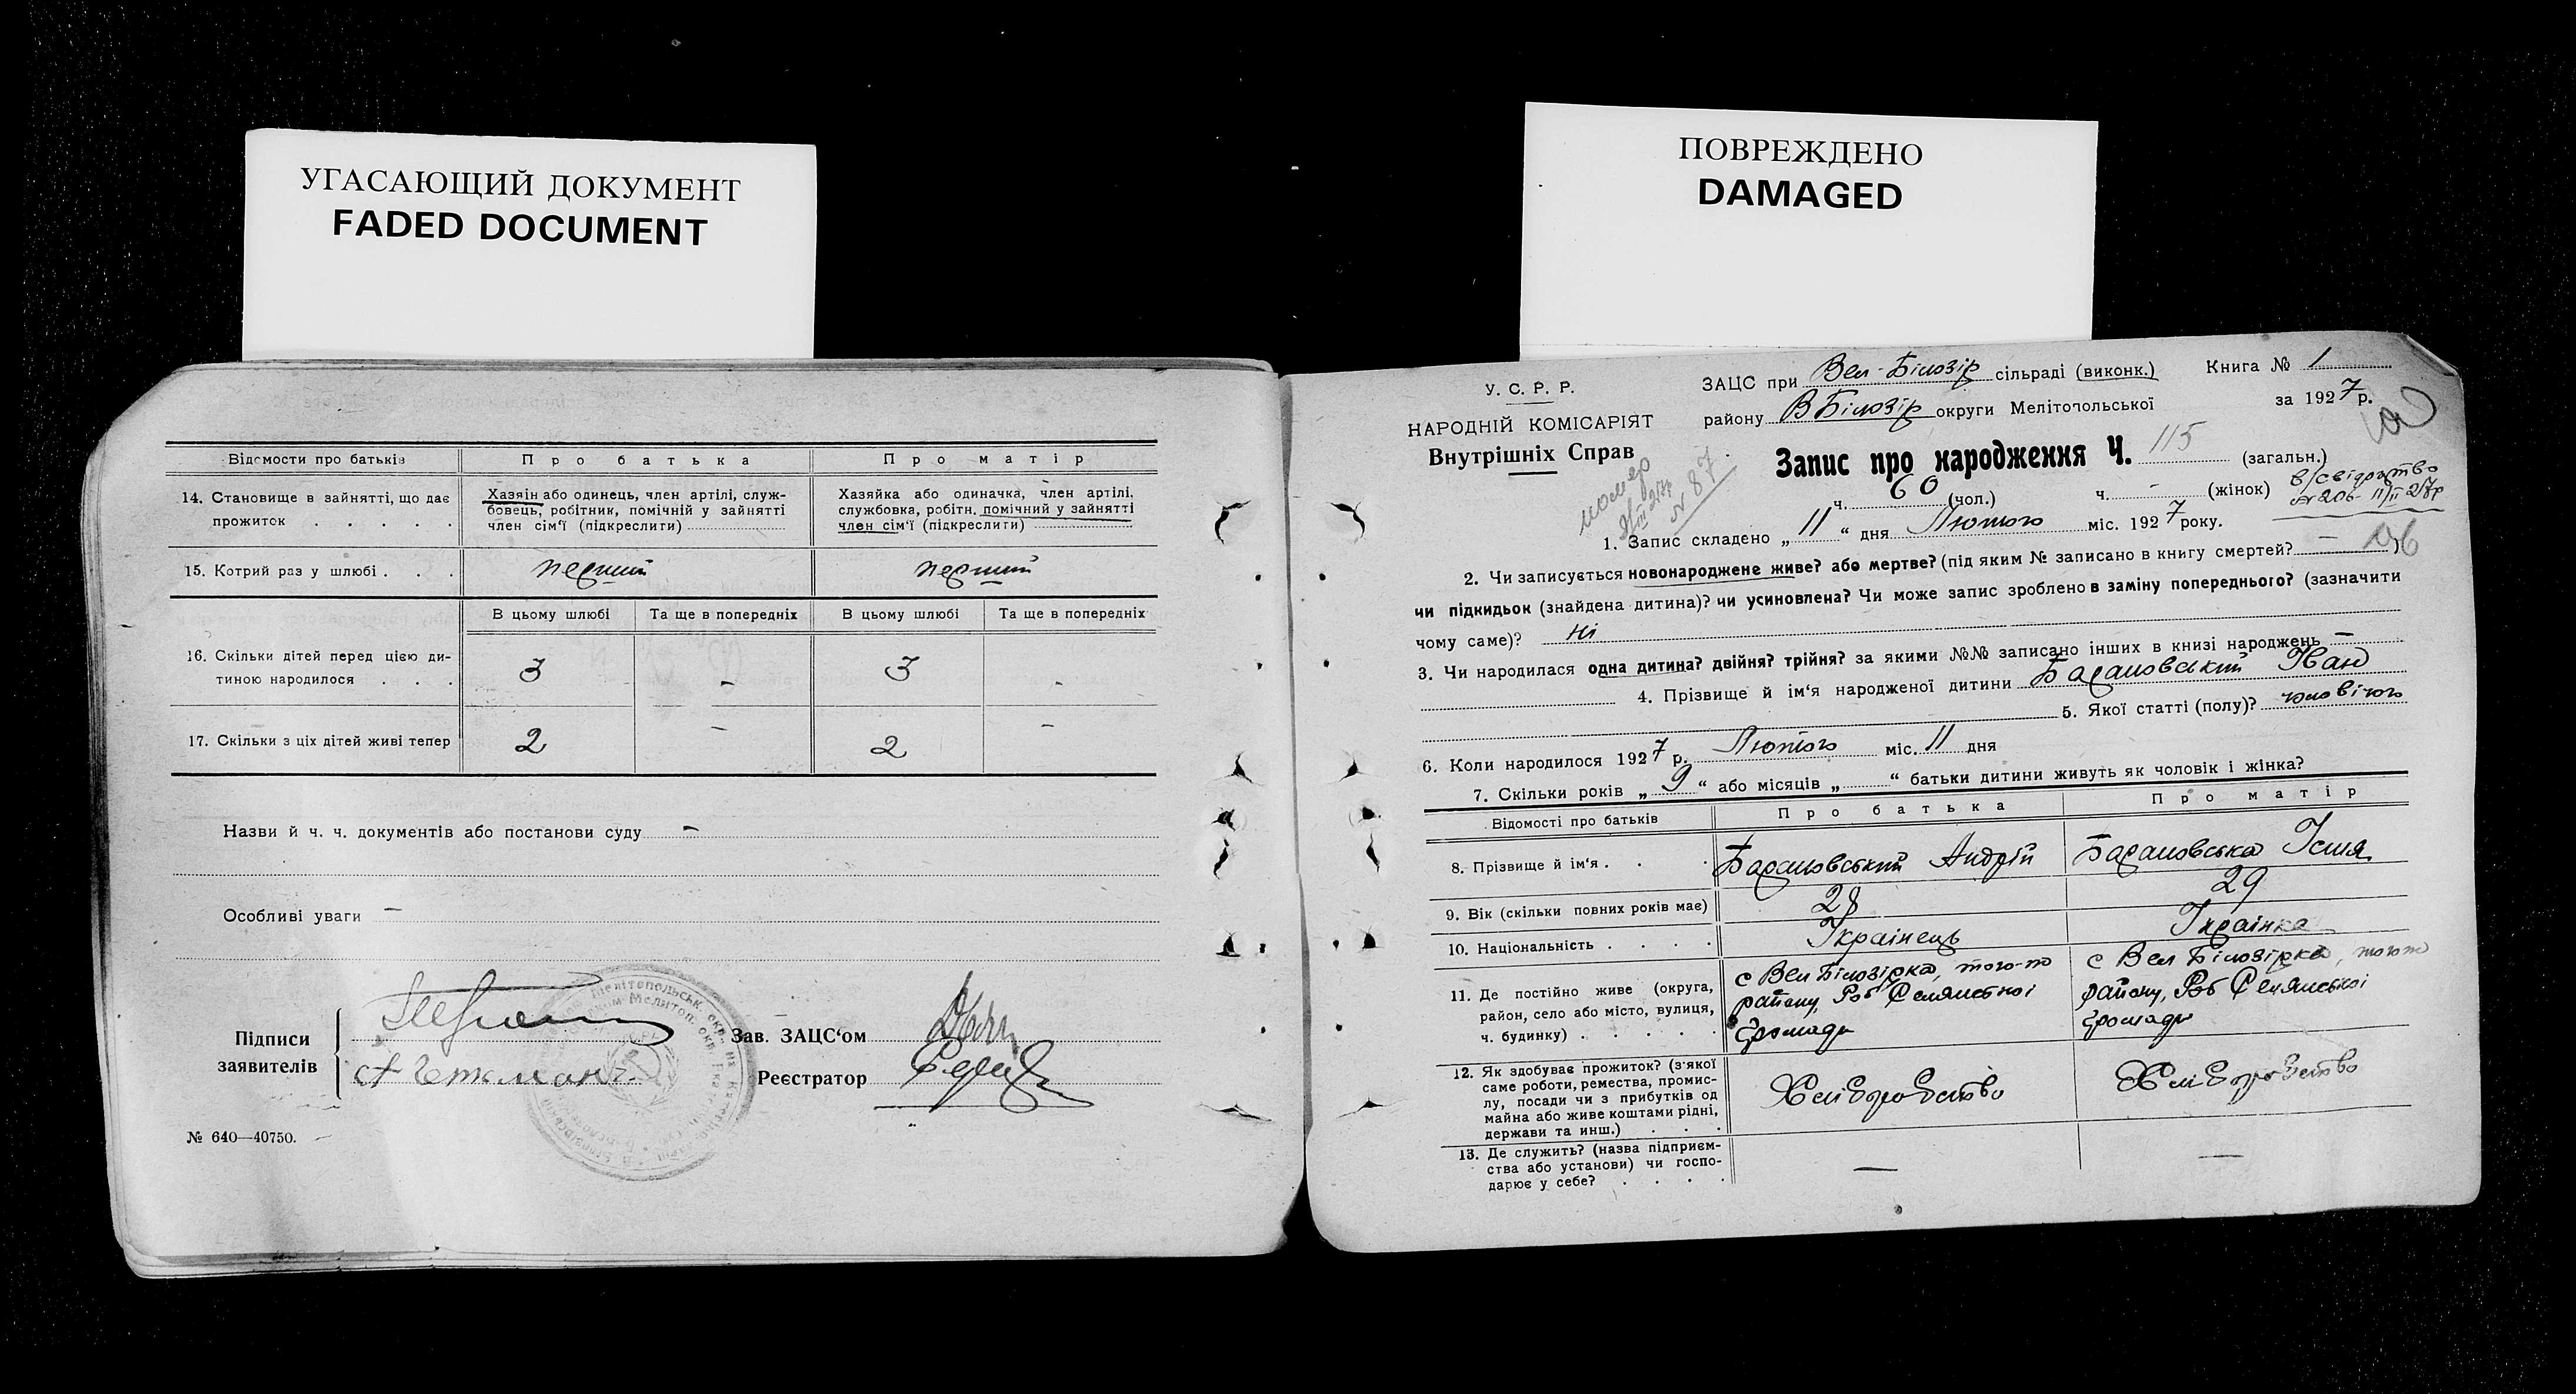 УГАСАЮЩИЙ ДОКУМЕНТ
FADED DOCUMENT
Відомости про батьків
Про батька
Про матір
14. Становище в зайнятті, що дає
прожиток . . . . .
Хазяін або одинець, член артілі, служ-
бовець, робітник, помічній у зайнятті
член сім'ї (підкреслити)
Хазяйка або одиначка, член артілі,
службовка, робітн. помічний у зайнятті
член сім'ї (підкреслити)
15. Котрий раз у шлюбі . . .
перший
перший
В цьому шлюбі
Та ще в попередніх
В цьому шлюбі
Та ще в попередніх
16. Скільки дітей перед цією ди-
тиною народилося . . .
3
-
3
-
17. Скільки з ціх дітей живі тепер
2
-
2
-
Назви й ч. ч. документів або постанови суду -
Особливі уваги -
Підписи
заявителів
А Гетман
Зав. ЗАЦС'ом
Реєстратор
№ 640—40750.
ПОВРЕЖДЕНО
DAMAGED
У. С. Р. Р.
НАРОДНІЙ КОМІСАРІЯТ
Внутрішніх Справ
ЗАЦС при Вел-Білозір сільраді (виконк.)
Книга № 1
району ВБілозір округи Мелітопольської
за 1927 р.
Запис про народження Ч. 115 (загальн.)
ч. 60 (чол.)
ч. - (жінок)
в/свідоцтво
№ 206 11/II 27р
помер
№ 87
1. Запис складено „11“ дня Лютого міс. 1927 року.
2. Чи записується новонароджене живе? або мертве? (під яким № записано в книгу смертей? — )
чи підкидьок (знайдена дитина)? чи усиновлена? Чи може запис зроблено в заміну попереднього? (зазначити
чому саме)? ні
3. Чи народилася одна дитина? двійня? трійня? за якими №№ записано інших в книзі народжень —
4. Прізвище й ім'я народженої дитини Барановський Іван
5. Якої статті (полу)? чоловічого
6. Коли народилося 1927 р. Лютого міс. 11 дня
7. Скільки років „9“ або місяців „ “ батьки дитини живуть як чоловік і жінка?
Відомості про батьків
Про батька
Про матір
8. Прізвище й ім'я . . .
Барановський Андрій
Барановська Юлія
9. Вік (скільки повних років має)
28
29
10. Національність . . . .
Українець
Українка
11. Де постійно живе (округа,
район, село або місто, вулиця,
ч. будинку) . . . . .
с Вел Білозірка, того-ж
району, Роб Селянської
громади
с Вел Білозірка, того ж
району, Роб Селянської
громади
12. Як здобуває прожиток? (з'якої
саме роботи, ремества, промис-
лу, посади чи з прибутків од
майна або живе коштами рідні,
держави та инш.) . . .
Хліборобство
Хліборобство
13. Де служить? (назва підприєм-
ства або установи) чи госпо-
дарює у себе? . . . .
—
—